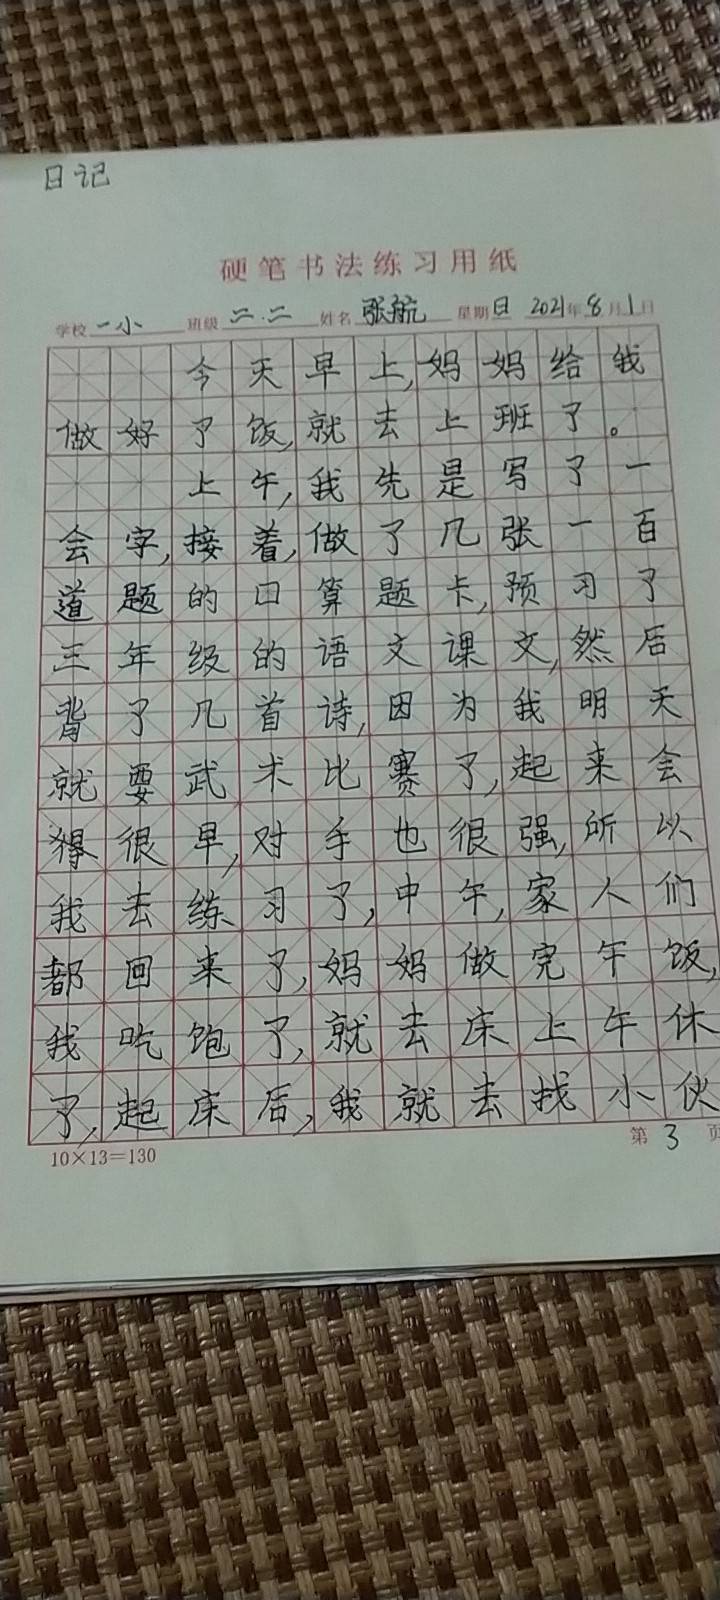 日记
硬笔书法练习用纸
学校 一小 班级 二.二 姓名 张航 星期日 2021年8月1日
今天早上,妈妈给我
做好了饭,就去上班了。
上午,我先是写了一
会字,接着,做了几张一百
道题的口算题卡,预习了
三年级的语文课文,然后
背了几首诗,因为我明天
就要武术比赛了,起来会
得很早,对手也很强,所以
我去练习了,中午,家人们
都回来了,妈妈做完午饭,
我吃饱了,就去床上午休
了,起床后,我就去找小伙
10×13=130
第 3 页